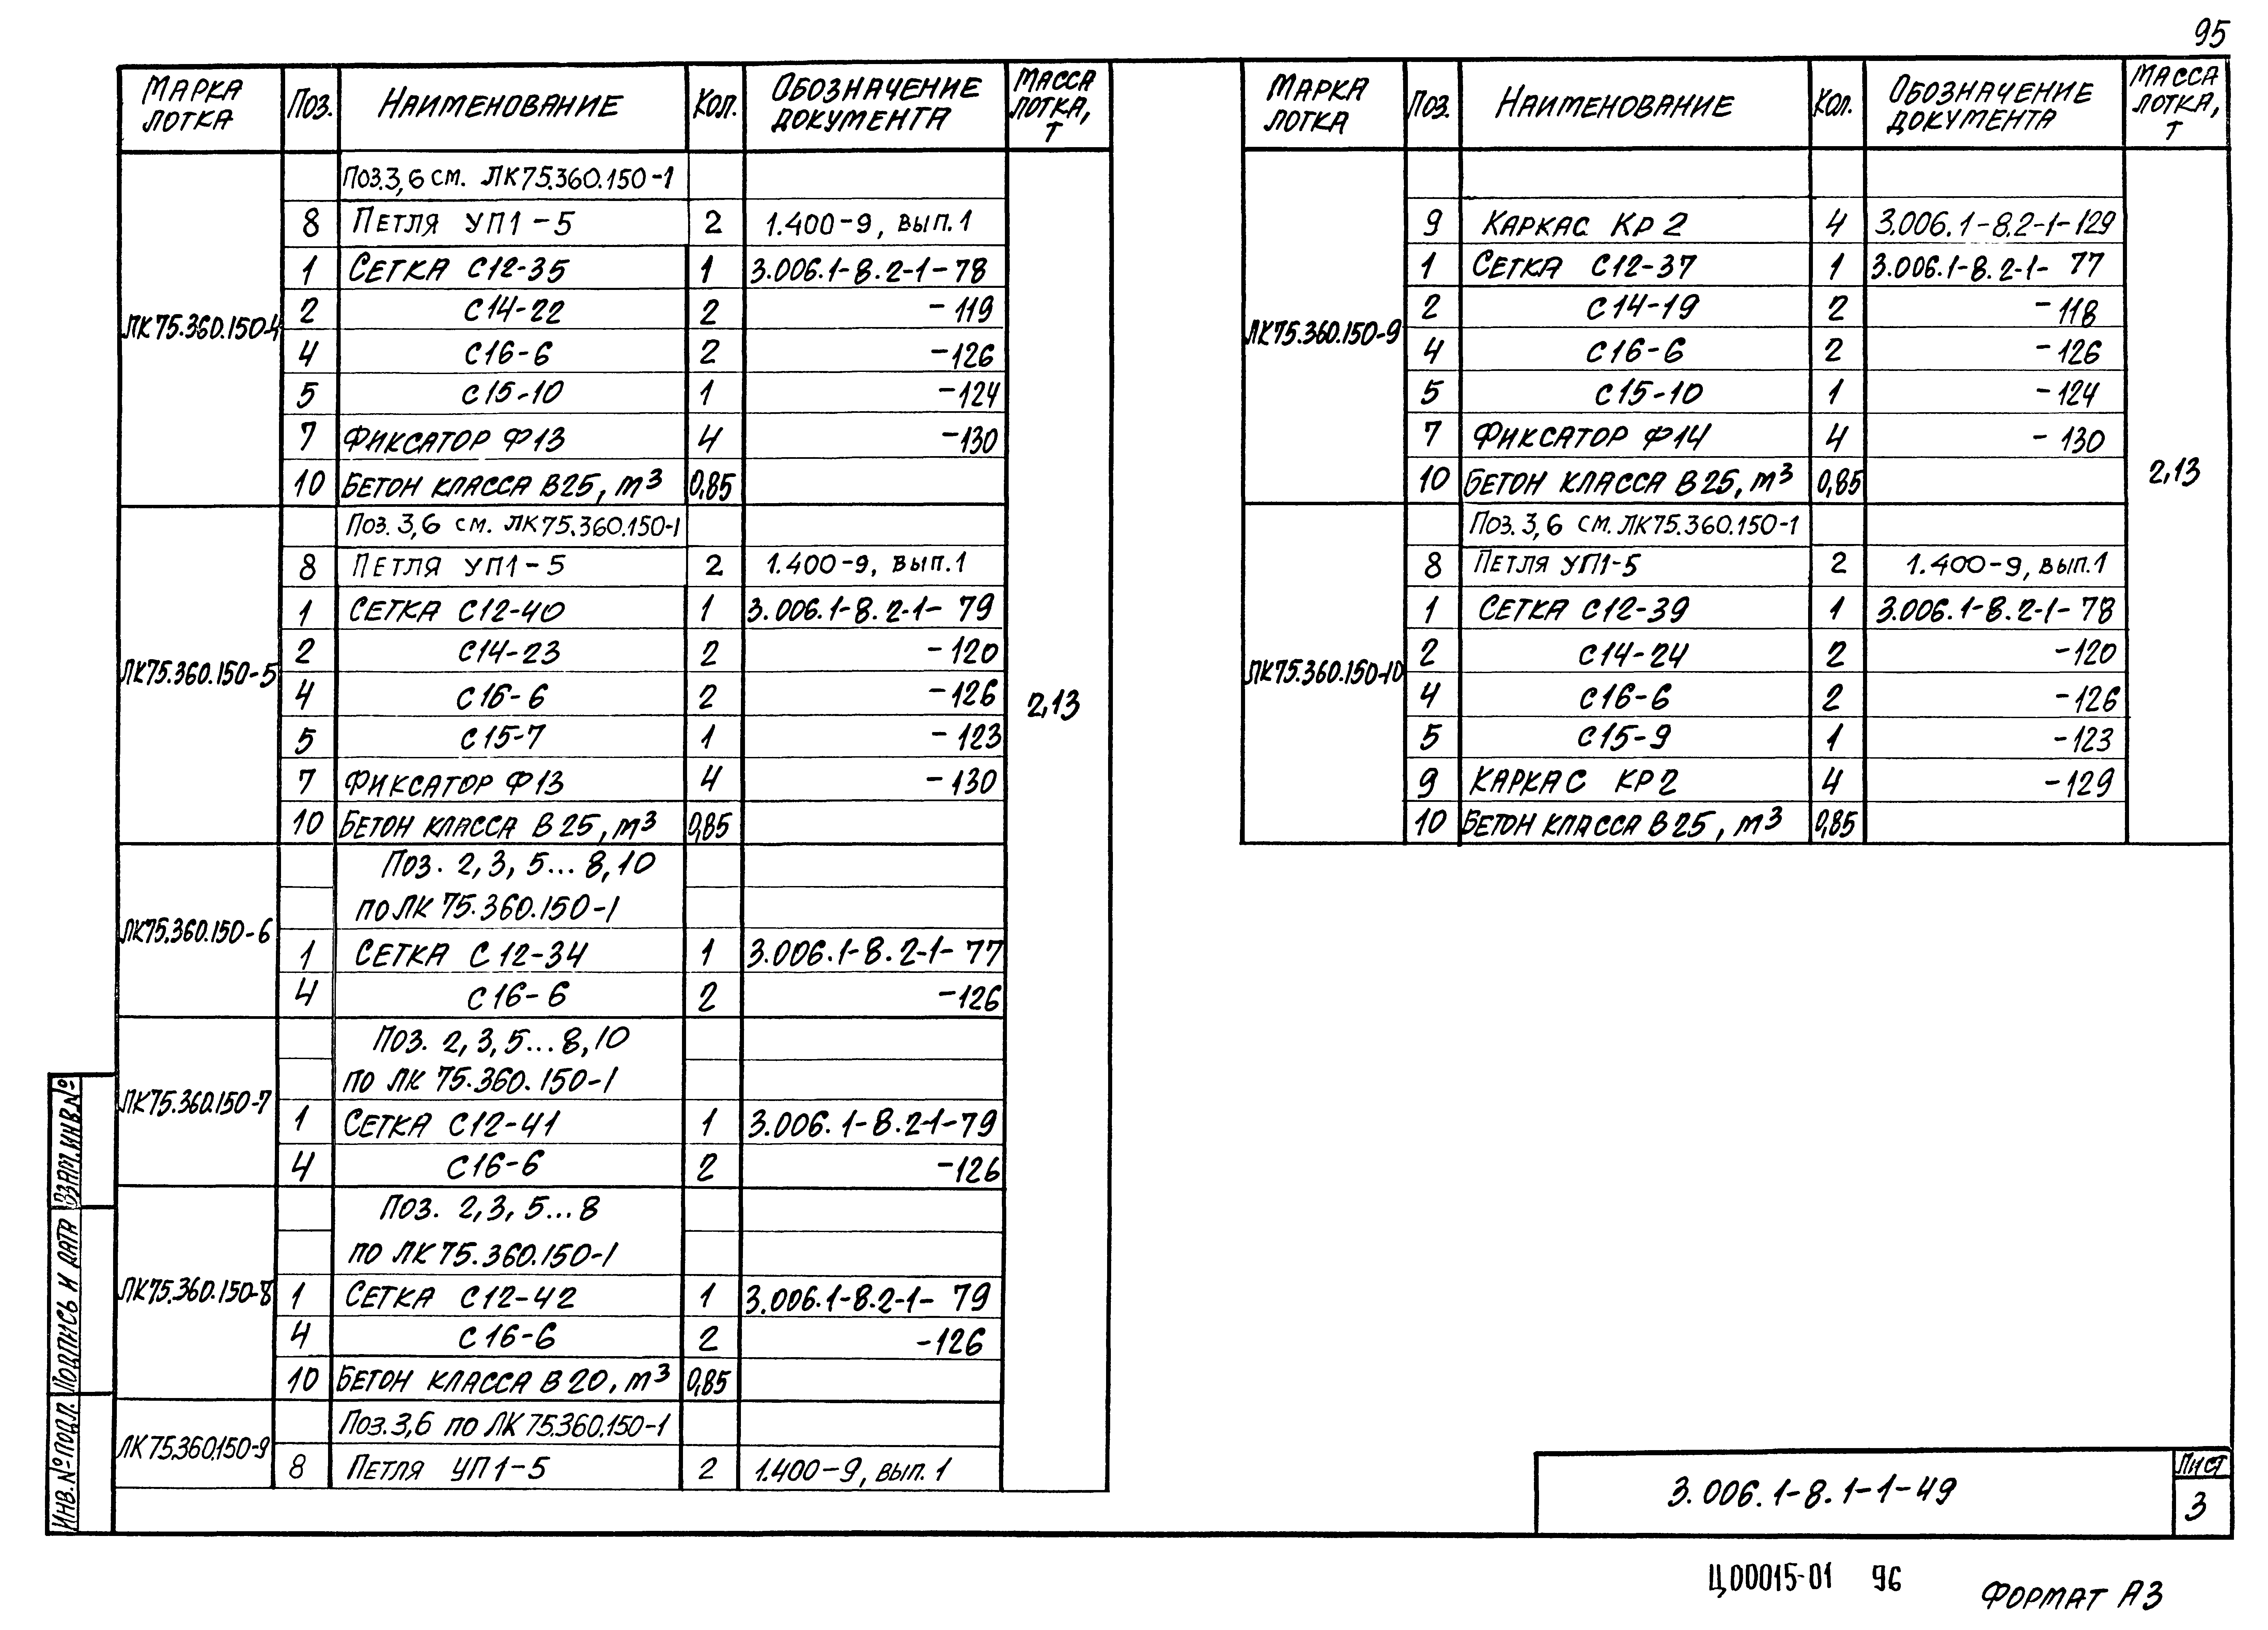 95
МАРКА ЛОТКА | ПОЗ. | НАИМЕНОВАНИЕ | КОЛ. | ОБОЗНАЧЕНИЕ ДОКУМЕНТА | МАССА ЛОТКА, Т
ЛК75.360.150-4
ПОЗ.3,6 СМ. ЛК75.360.150-1
8 | ПЕТЛЯ УП1-5 | 2 | 1.400-9, ВЫП.1
1 | СЕТКА С12-35 | 1 | 3.006.1-8.2-1-78
2 | С14-22 | 2 | -119
4 | С16-6 | 2 | -126
5 | С15-10 | 1 | -124
7 | ФИКСАТОР Ф13 | 4 | -130
10 | БЕТОН КЛАССА В25, м³ | 0,85
ЛК75.360.150-5
ПОЗ. 3,6 СМ. ЛК75.360.150-1
8 | ПЕТЛЯ УП1-5 | 2 | 1.400-9, ВЫП.1
1 | СЕТКА С12-40 | 1 | 3.006.1-8.2-1-79
2 | С14-23 | 2 | -120
4 | С16-6 | 2 | -126
5 | С15-7 | 1 | -123
7 | ФИКСАТОР Ф13 | 4 | -130
10 | БЕТОН КЛАССА В25, м³ | 0,85
2,13
ЛК75.360.150-6
ПОЗ. 2,3, 5...8,10
ПО ЛК 75.360.150-1
1 | СЕТКА С12-34 | 1 | 3.006.1-8.2-1-77
4 | С16-6 | 2 | -126
ЛК75.360.150-7
ПОЗ. 2,3,5...8,10
ПО ЛК 75.360.150-1
1 | СЕТКА С12-41 | 1 | 3.006.1-8.2-1-79
4 | С16-6 | 2 | -126
ЛК75.360.150-8
ПОЗ. 2,3, 5...8
ПО ЛК 75.360.150-1
1 | СЕТКА С12-42 | 1 | 3.006.1-8.2-1-79
4 | С16-6 | 2 | -126
10 | БЕТОН КЛАССА В20, м³ | 0,85
ЛК75.360.150-9
ПОЗ.3,6 ПО ЛК75.360.150-1
8 | ПЕТЛЯ УП1-5 | 2 | 1.400-9, ВЫП. 1
МАРКА ЛОТКА | ПОЗ. | НАИМЕНОВАНИЕ | КОЛ. | ОБОЗНАЧЕНИЕ ДОКУМЕНТА | МАССА ЛОТКА, Т
ЛК75.360.150-9
9 | КАРКАС КР2 | 4 | 3.006.1-8.2-1-129
1 | СЕТКА С12-37 | 1 | 3.006.1-8.2-1-77
2 | С14-19 | 2 | -118
4 | С16-6 | 2 | -126
5 | С15-10 | 1 | -124
7 | ФИКСАТОР Ф14 | 4 | -130
10 | БЕТОН КЛАССА В25, м³ | 0,85
2,13
ЛК75.360.150-10
ПОЗ. 3,6 СМ. ЛК75.360.150-1
8 | ПЕТЛЯ УП1-5 | 2 | 1.400-9, ВЫП.1
1 | СЕТКА С12-39 | 1 | 3.006.1-8.2-1-78
2 | С14-24 | 2 | -120
4 | С16-6 | 2 | -126
5 | С15-9 | 1 | -123
9 | КАРКАС КР2 | 4 | -129
10 | БЕТОН КЛАССА В25, м³ | 0,85
ВЗАМ.ИНВ.№
ПОДПИСЬ И ДАТА
ИНВ.№ПОДЛ.
3.006.1-8.1-1-49
ЛИСТ
3
Ц00015-01 96
ФОРМАТ А3